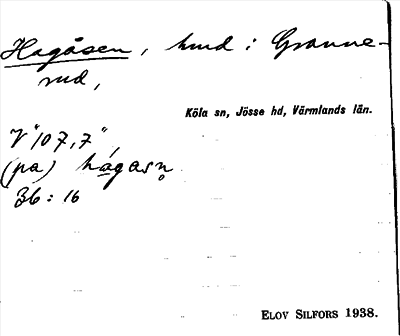 Hagåsen, hmd i Granne-
rud,
Köla sn, Jösse hd, Värmlands län.
V "107,7",
(pa) hágasn̥
36 : 16
ELOV SILFORS 1938.